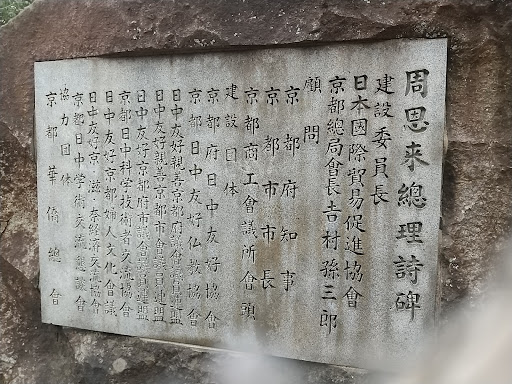 周恩来總理詩碑
建設委員長
日本國際貿易促進協會
京都總局會長吉村孫三郎
顧問
京都府知事
京都市市長
京都商工會議所會頭
建設団体
京都府日中友好協會
京都日中友好仏教協會
日中友好親善京都府議會議員連盟
日中友好親善京都市會議員連盟
日中友好京都府市議會議員連盟
京都日中科学技術者交流協會
日中友好京都婦人文化會議
日中友好京・滋・奈経済交流協會
京都日中学術交流懇談會
協力団体
京都華僑總會